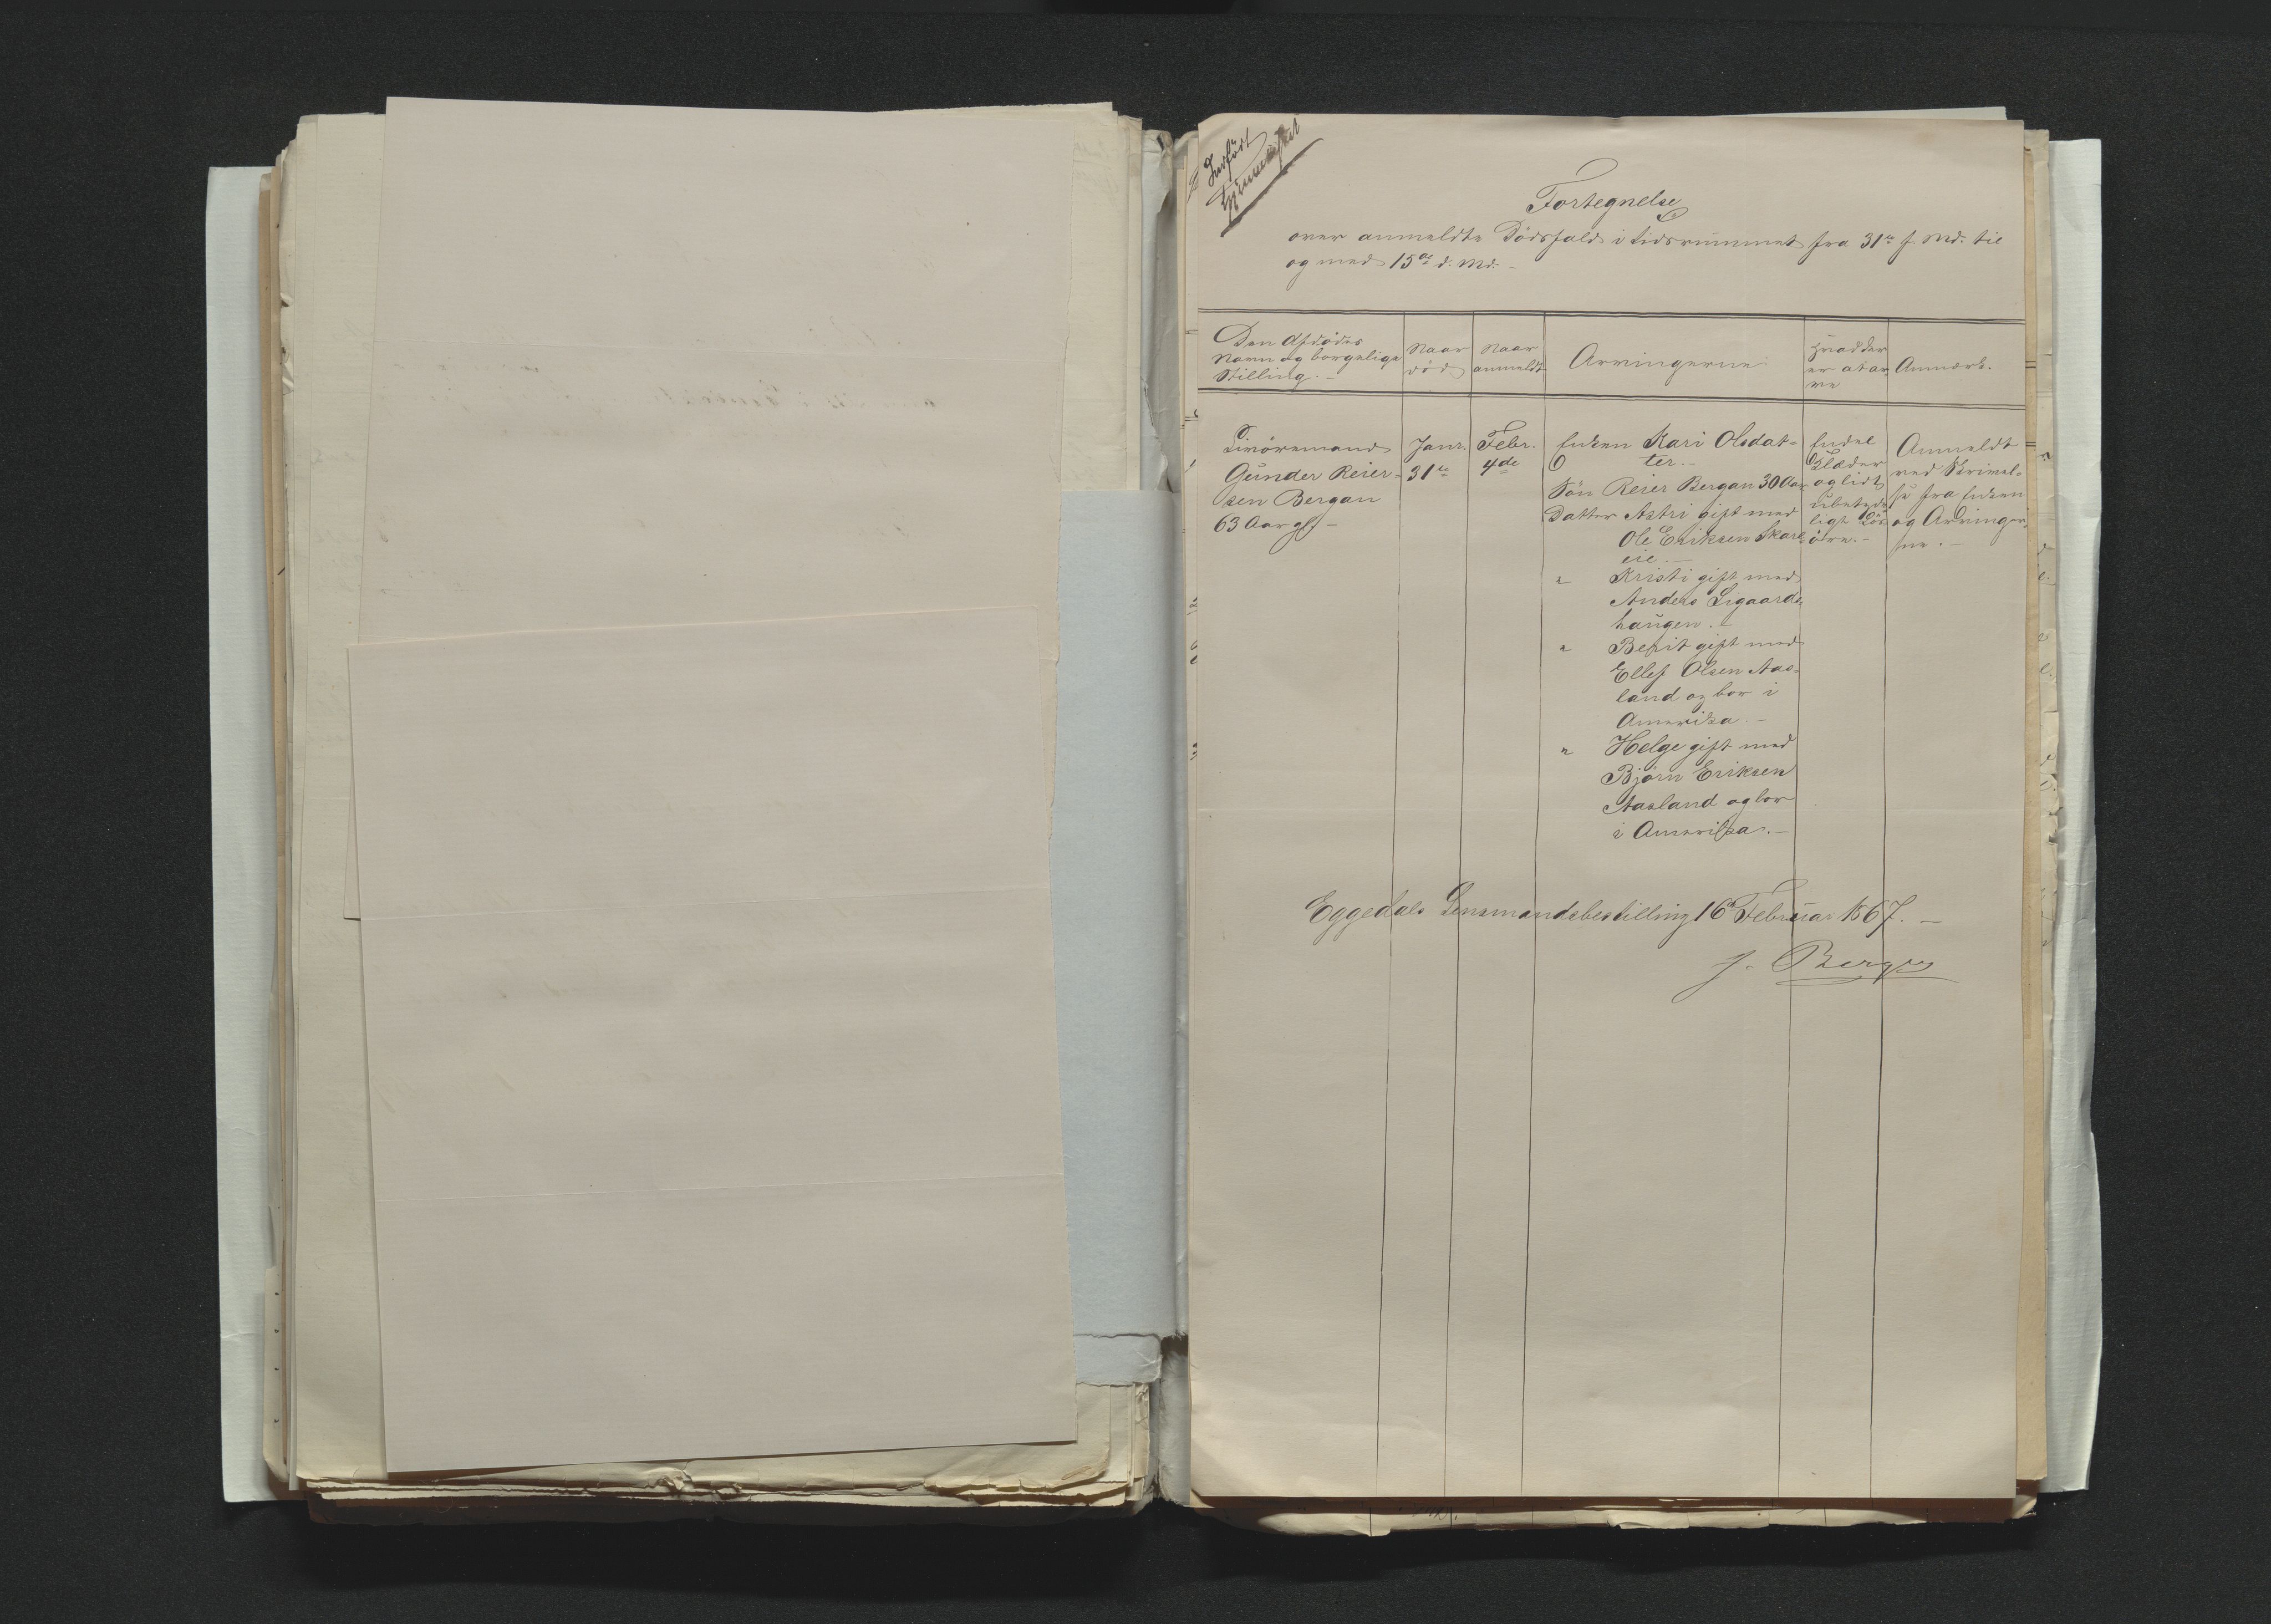 Indført
Fortegnelse
over anmeldte Dödsfald i tidsrummet fra 31te f. Md. til
og med 15de d. Md. –
Den Afdödes
Navn og borgelige
Stilling. –
Naar
död
Naar
anmeldt
Arvingerne
Hvad der
er at ar
ve
Anmærk.
Livöremand
Gunder Reier-
sen Bergan
63 Aar gl. –
Janr.
31te
Febr.
4de
Enken Kari Olsdat-
ter. –
Sön Reier Bergan 30 Aar
Datter Astri gift med
Ole Eriksen Skare
eie. –
" Kristi gift med
Anders Ligaards
haugen. –
" Berit gift med
Ellef Olsen Aas-
land og bor i
Amerika. –
" Helge gift med
Björn Eriksen
Aasland og bor
i Amerika. –
Endel
Klæder
og lidt
ubetyde
ligt Lös-
öre. –
Anmeldt
ved Skrivel-
se fra Enken
og Arvinger-
ne. –
Eggedals Lensmandsbestilling 16de Februar 1867. –
J. Berg